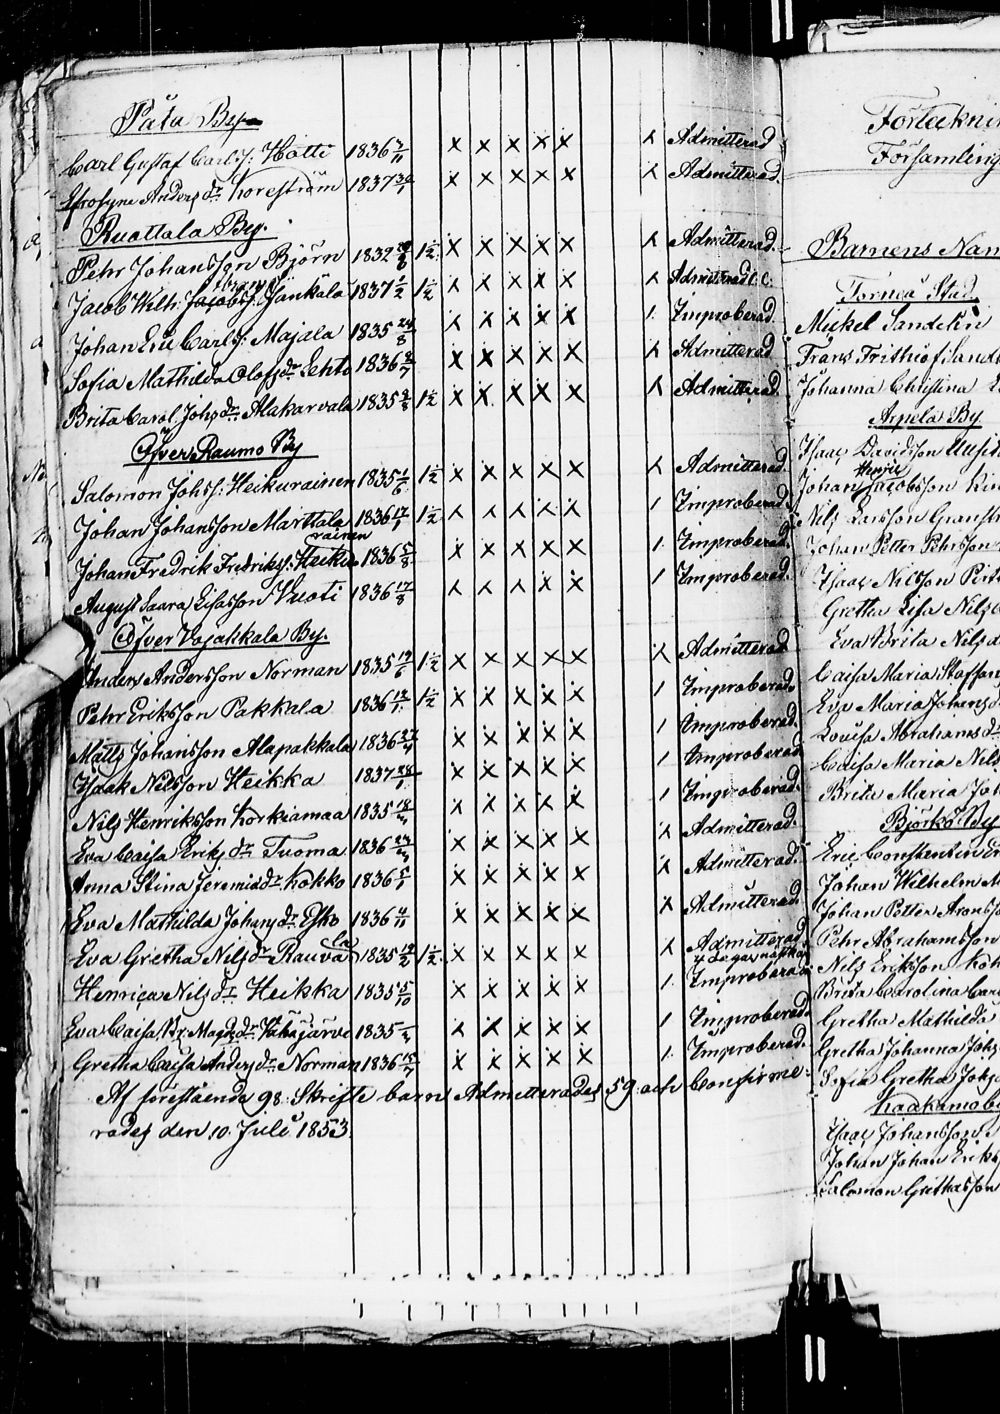 Påtu By
Carl Gustaf Carlss: Hotti 1836 x x x x x x Admitterad
Efrosyne Anders dr Korström 1837 x x x x x x Admitterad.
Ruottala By.
Pehr Johansson Björn 1832 1½ x x x x x x Admitterad.
Jacob Wilh: Jänkälä 1837 1/2 1½ x x x x x x Admitterad
Johan Eric Carlss: Majala 1835 24/8 x x x x x 1. Improberad.
Sofia Mathilda Olofs dr Lehto 1836 x x x x x x Admitterad
Brita Carol. Johs dr Alakarvala 1835 1½ x x x x x x Admitterad.
Öfver Raumo By
Salomon Johss: Heikurainen 1835 1/6 1½ x x x x x x Admitterad.
Johan Johansson Marttala 1836 17/1 1½ x x x x x 1 Improberad.
rainen
Johan Fredrik Fredrikss: Heiku 1836 5/8 x x x x x 1. Improberad.
August Saara Lisasson Vuoti 1836 17/8 x x x x x 1 Improberad.
Öfver Vojakkala By.
Anders Andersson Norman 1835 19/6 1½ x x x x x x Admitterad
Pehr Eriksson Pakkala 1836 12/1 1½ x x x x x 1 Improberad.
Matts Johansson Alapakkala 1836 x x x x x 1 Improberad.
Isaak Nilsson Heikka 1837 x x x x x 1 Improberad
Nils Henriksson Korkiamaa 1835 x x x x x 1 Improberad.
Eva Caisa Eriks dr Tuoma 1836 x x x x x x Admitterad.
Anna Stina Jeremias dr Kokko 1836 5/1 x x x x x x Admitterad.
Eva Mathilda Johans dr Esko 1836 x x x x x x Admitterad.
Eva Gretha Nils dr Rauvala 1835 19/2 1½ x x x x x x Admitterad
Henrica Nils dr Heikka 1835 5/10 x x x x x 1. Improberad
Eva Caisa Br: Magd: dr Vähäjärvi 1835 x x x x x 1 Improberad.
Gretha Caisa Anders dr Norman 1836 x x x x x 1. Improberad.
Af förestående 98. Skrifte barn Admitterades 59 och Confirme-
rades den 10 Juli 1853.
Församling
Barnens Nam
Torneå Stad.
Mickel Sandelin
Frans Frithiof Sand
Johanna Christina
Arpela By
Isaac Davidsson
Henric
Johan Jacobsson
Nils Larsson
Johan Petter Pehrsson
Isaac Nilsson
Gretha Lisa Nils
Eva Brita Nils d
Caisa Maria Staffan
Eva Maria Johans d
Lovisa Abrahams d
Caisa Maria Nils
Brita Maria Joh
Björkö By
Eric Constantin
Johan Wilhelm
Johan Petter Aronsso
Pehr Abrahamsson
Nils Eriksson
Brita Carolina Car
Gretha Mathilda
Gretha Johanna Johs
Sofia Gretha Johs
Isaac Johansson
Johan Johan Eriks
Salomon Grethasson